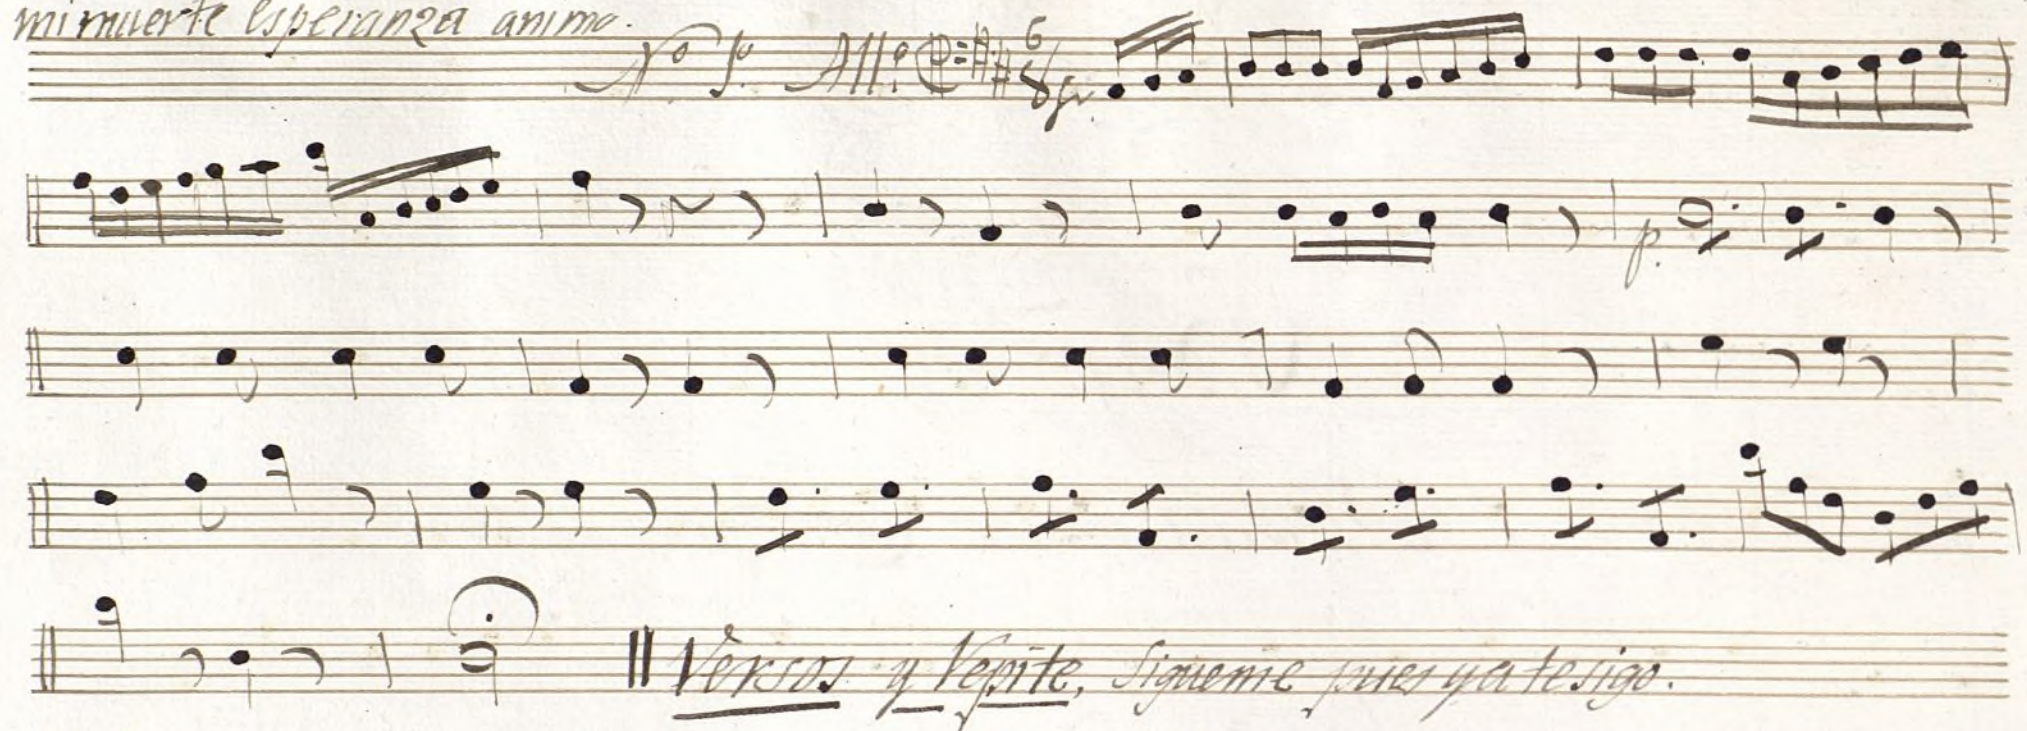 mi muerte esperanza animo.
All.º 6 8
p.
Versos y Repite, Sigueme pues ya te sigo.